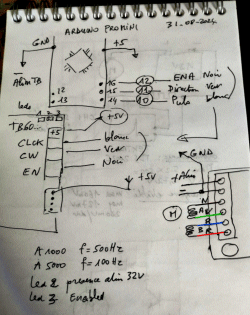 31-08-2024
ARDUINO PROMINI
GND
+5
Alim TB
12
13
leds
16
15
14
12 ENA Noir
11 Direction Vert
10 Pulse blanc
TB60...
+5V
+5
CLCK blanc
CW Vert
EN Noir
GND
+5V
+Alim
N
M
V
R
B R
A 1000 f=500Hz
A 5000 f=100Hz
Led 2 presence alim 32V
Led 3 Enabled